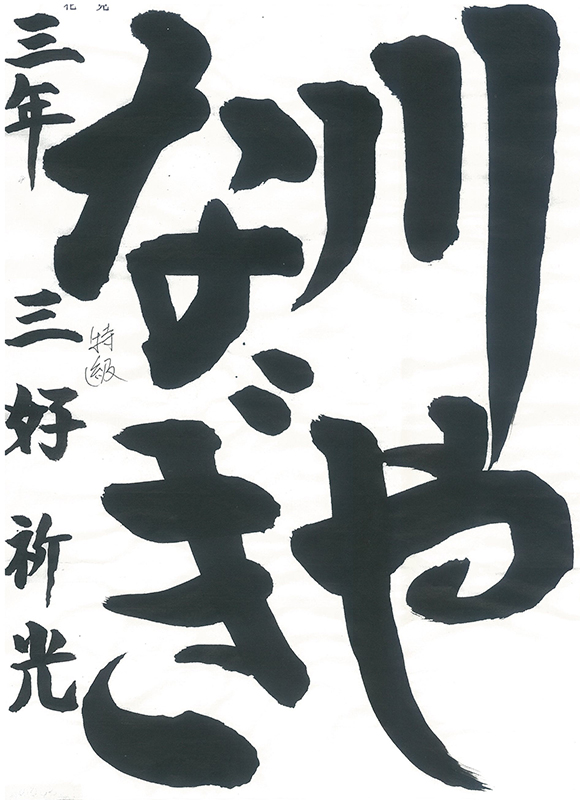 川や
なぎ
三年 三好 祈光
特級